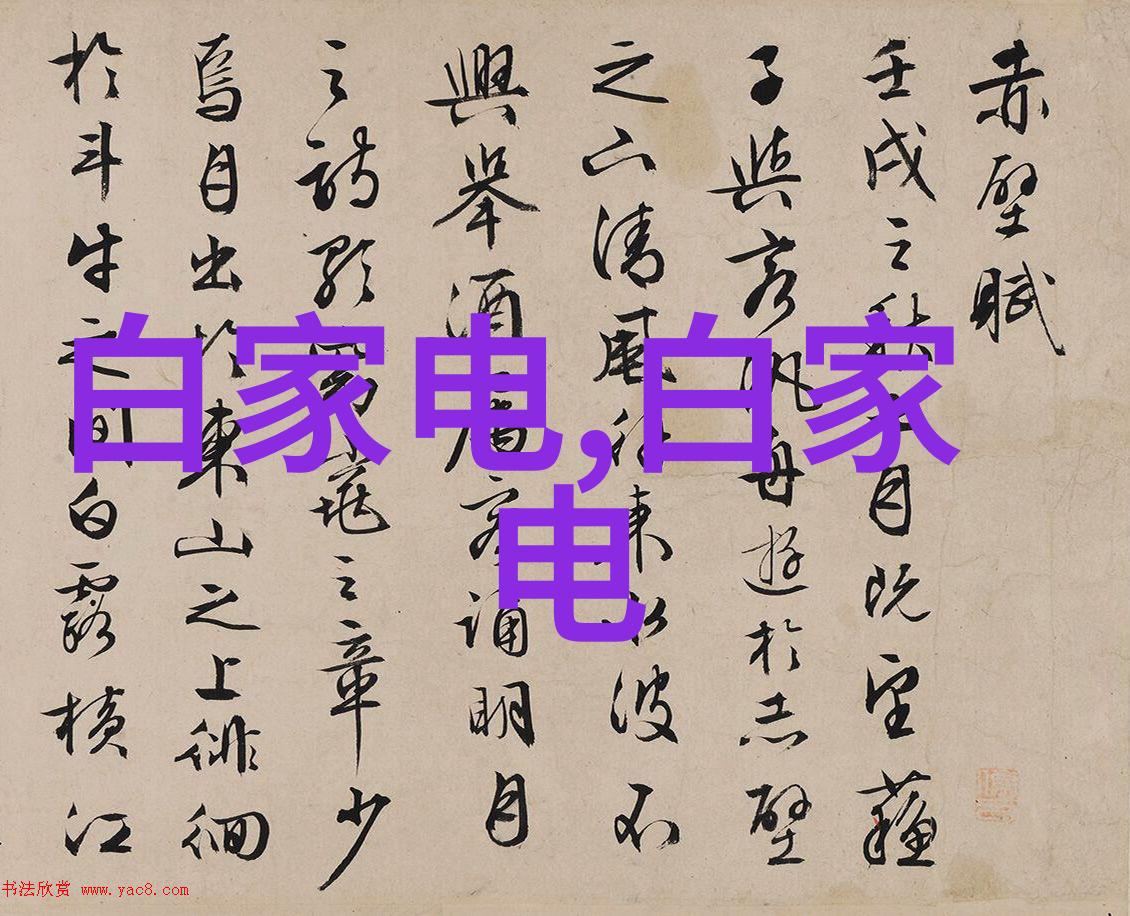 赤壁賦
壬戌之秋七月既望蘓
子與客汎舟遊於赤壁
之下清風徐來水波不
興舉酒屬客誦明月
之詩歌窈窕之章少
焉月出於東山之上徘徊
於斗牛之間白露橫江
白家电,白家
电
书法欣赏 www.yac8.com